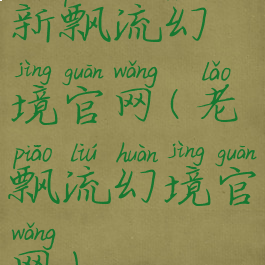 新飘流幻
jìng guān wǎng lǎo
境官网(老
piāo liú huàn jìng guān
飘流幻境官
wǎng
网)